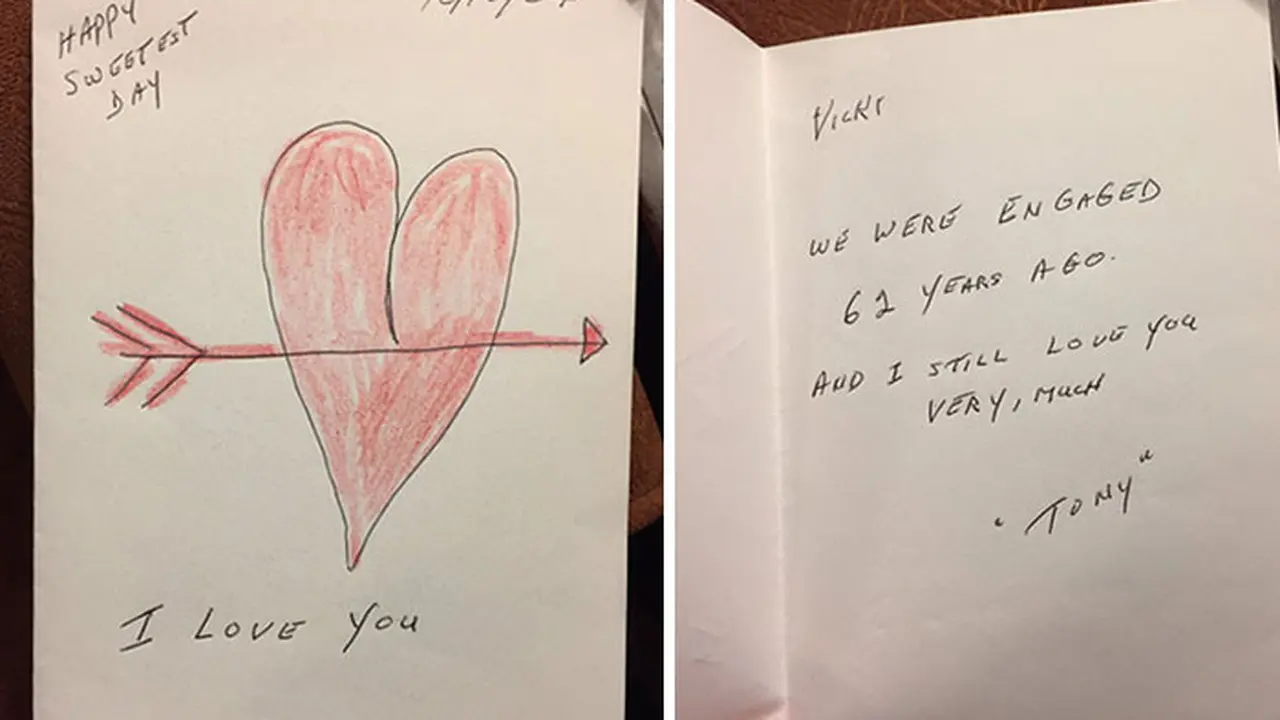 HAPPY
SWEETEST
DAY
I LOVE YOU
VICKI
WE WERE ENGAGED
62 YEARS AGO.
AND I STILL LOVE YOU
VERY, MUCH
"TONY"